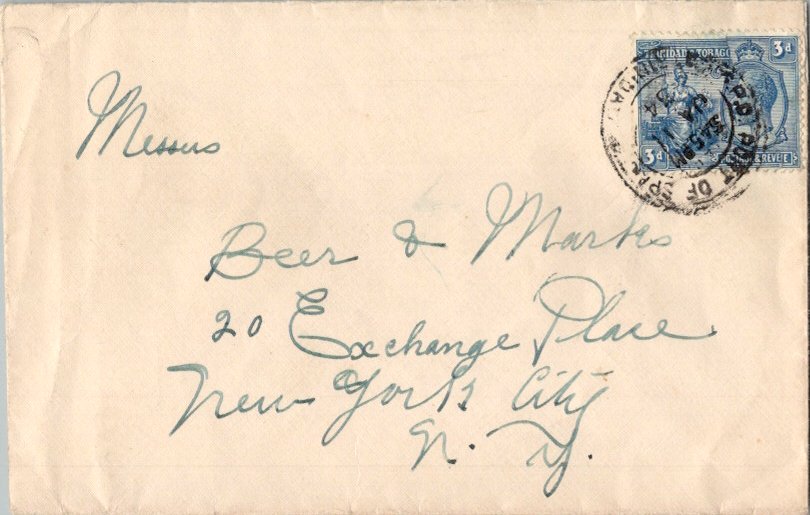 TRINIDAD & TOBAGO 3d
3d POSTAGE & REVENUE
PORT OF SPAIN
TRINIDAD
5.45 PM
11 JA
34
Messrs
Beer & Marks
20 Exchange Place
New York City
N. Y.